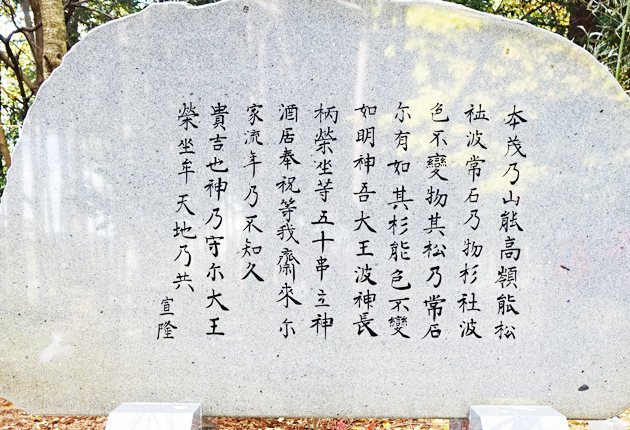 本茂乃山能高嶺能松
社波常石乃物杉社波
色不變物其松乃常石
尓有如其杉能色不變
如明神吾大王波神長
柄榮坐等五十串立神
酒居奉祝等我齋來尓
家流年乃不知久
貴吉也神乃守尓大王
榮坐牟天地乃共
宣隆